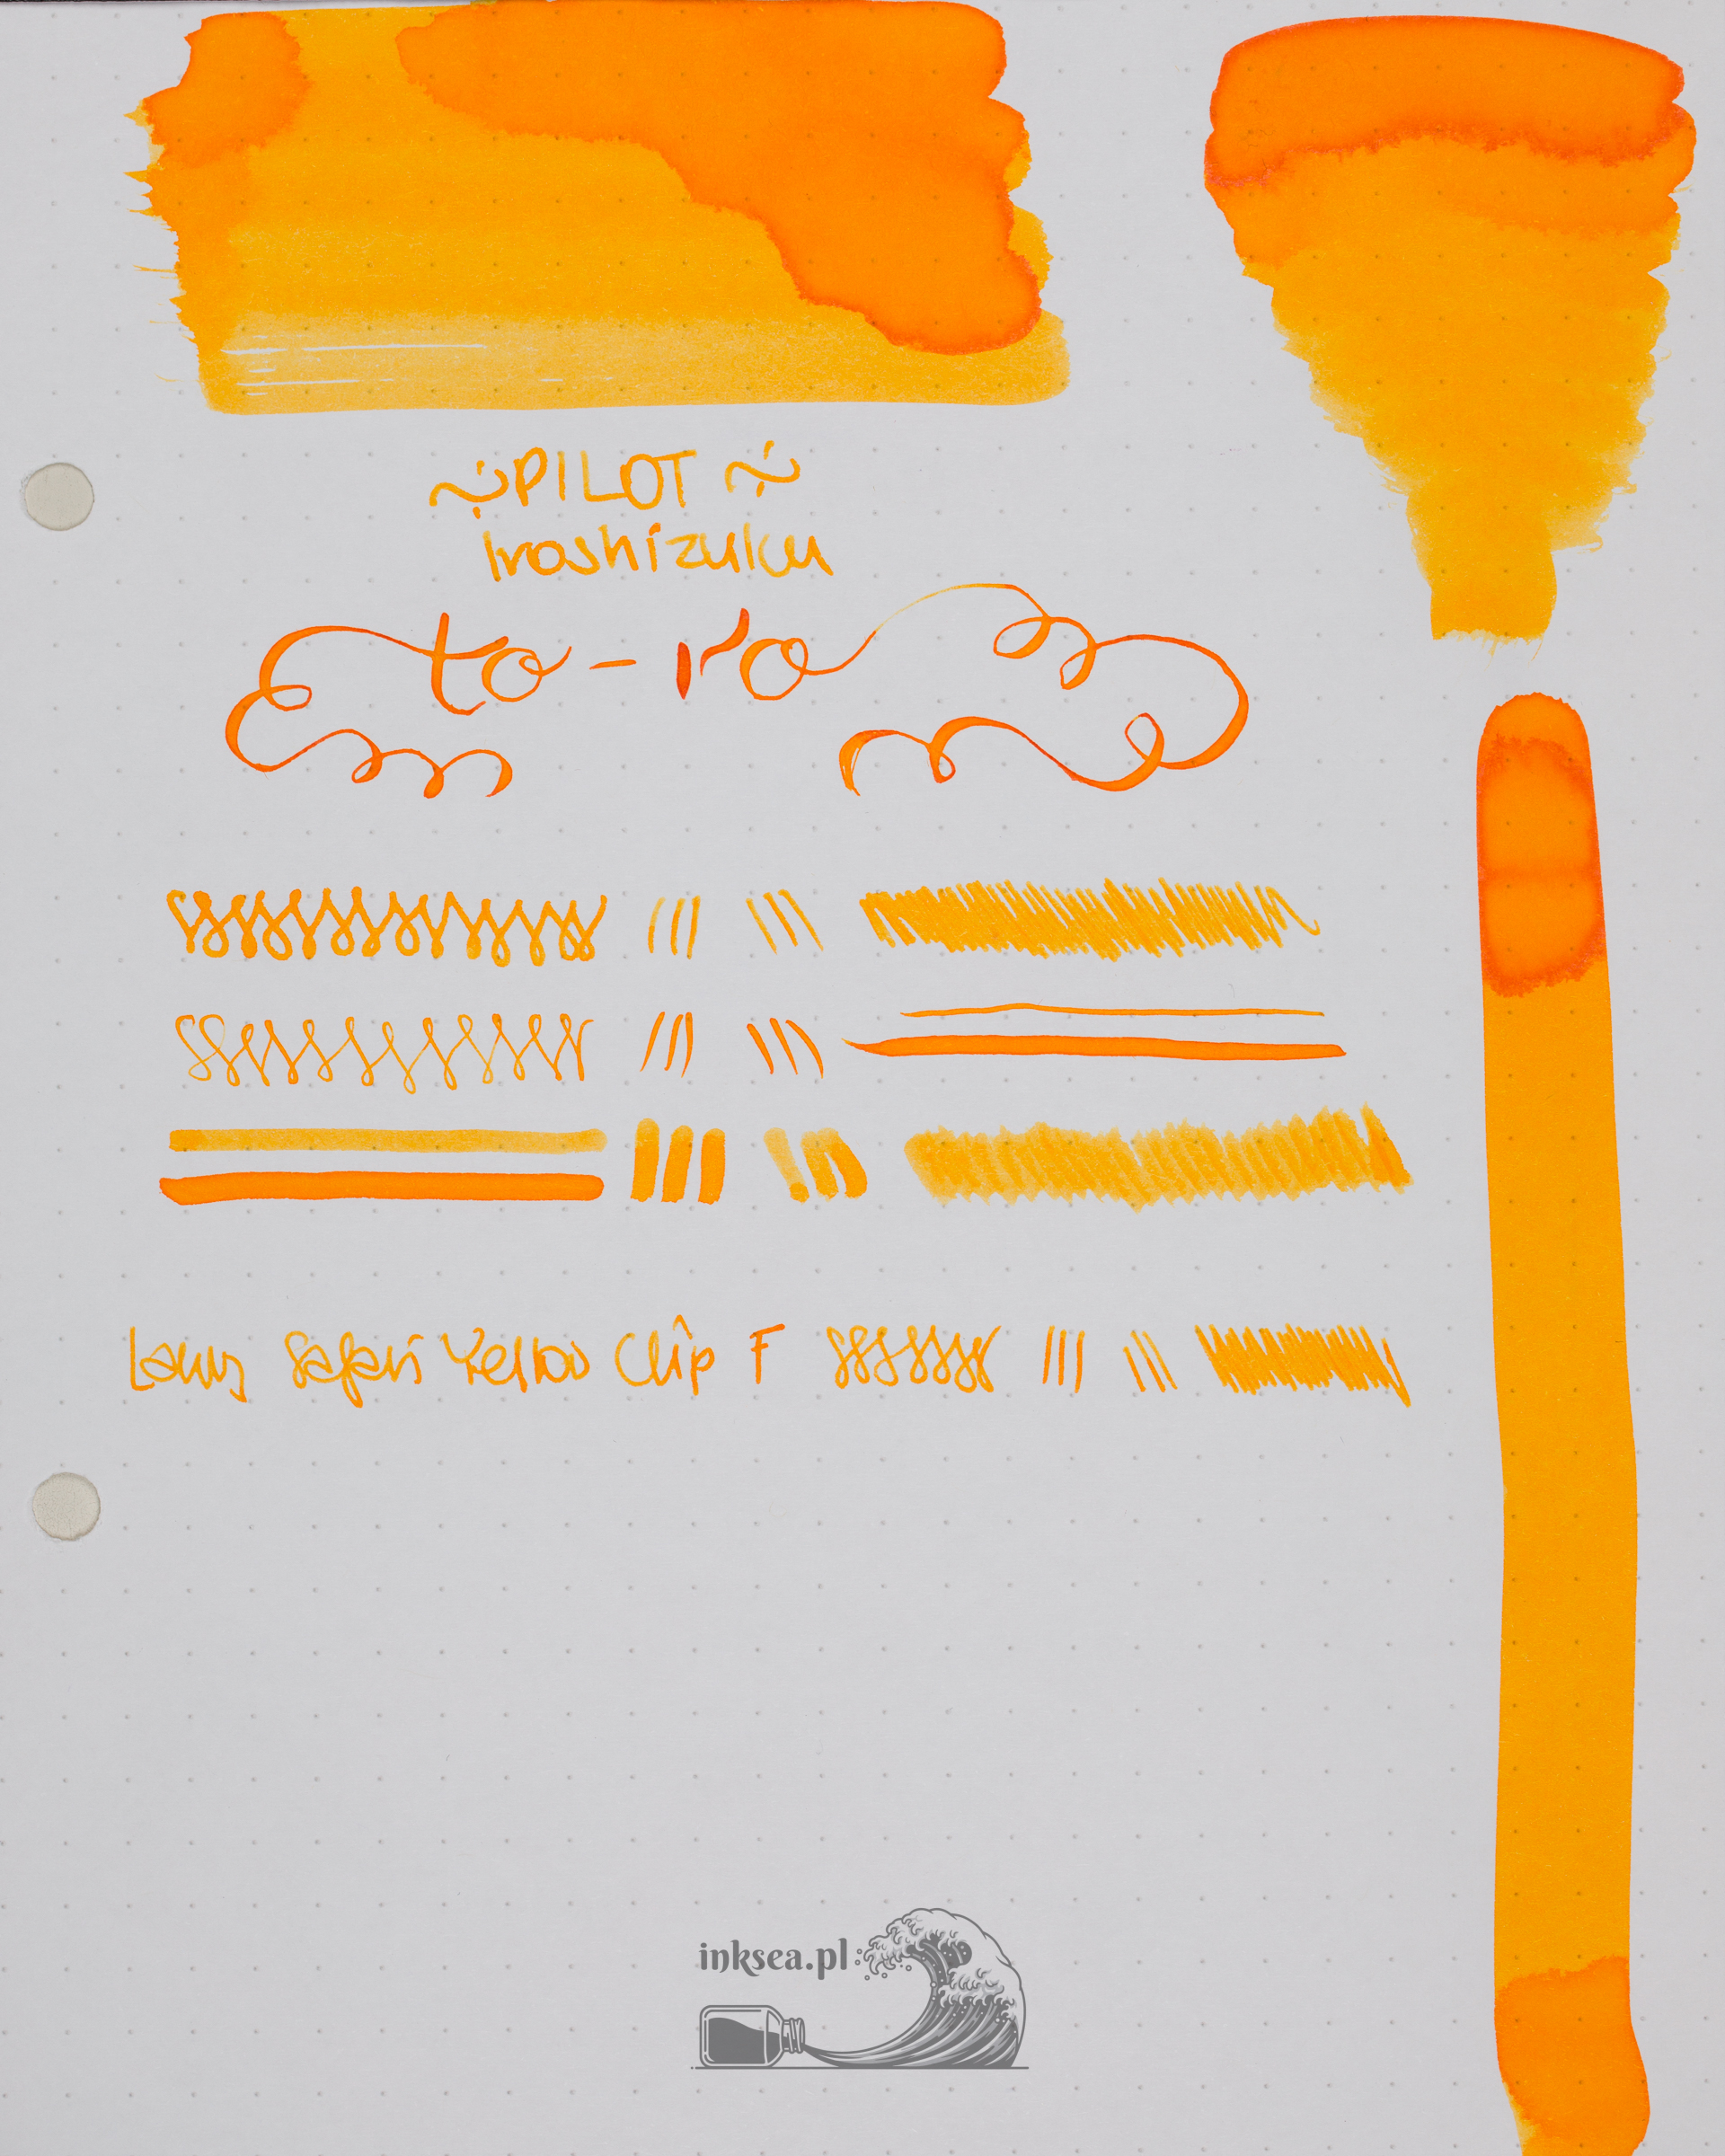 ~PILOT~
Iroshizuku
to-ro
Lamy Safari Yellow Clip F
inksea.pl